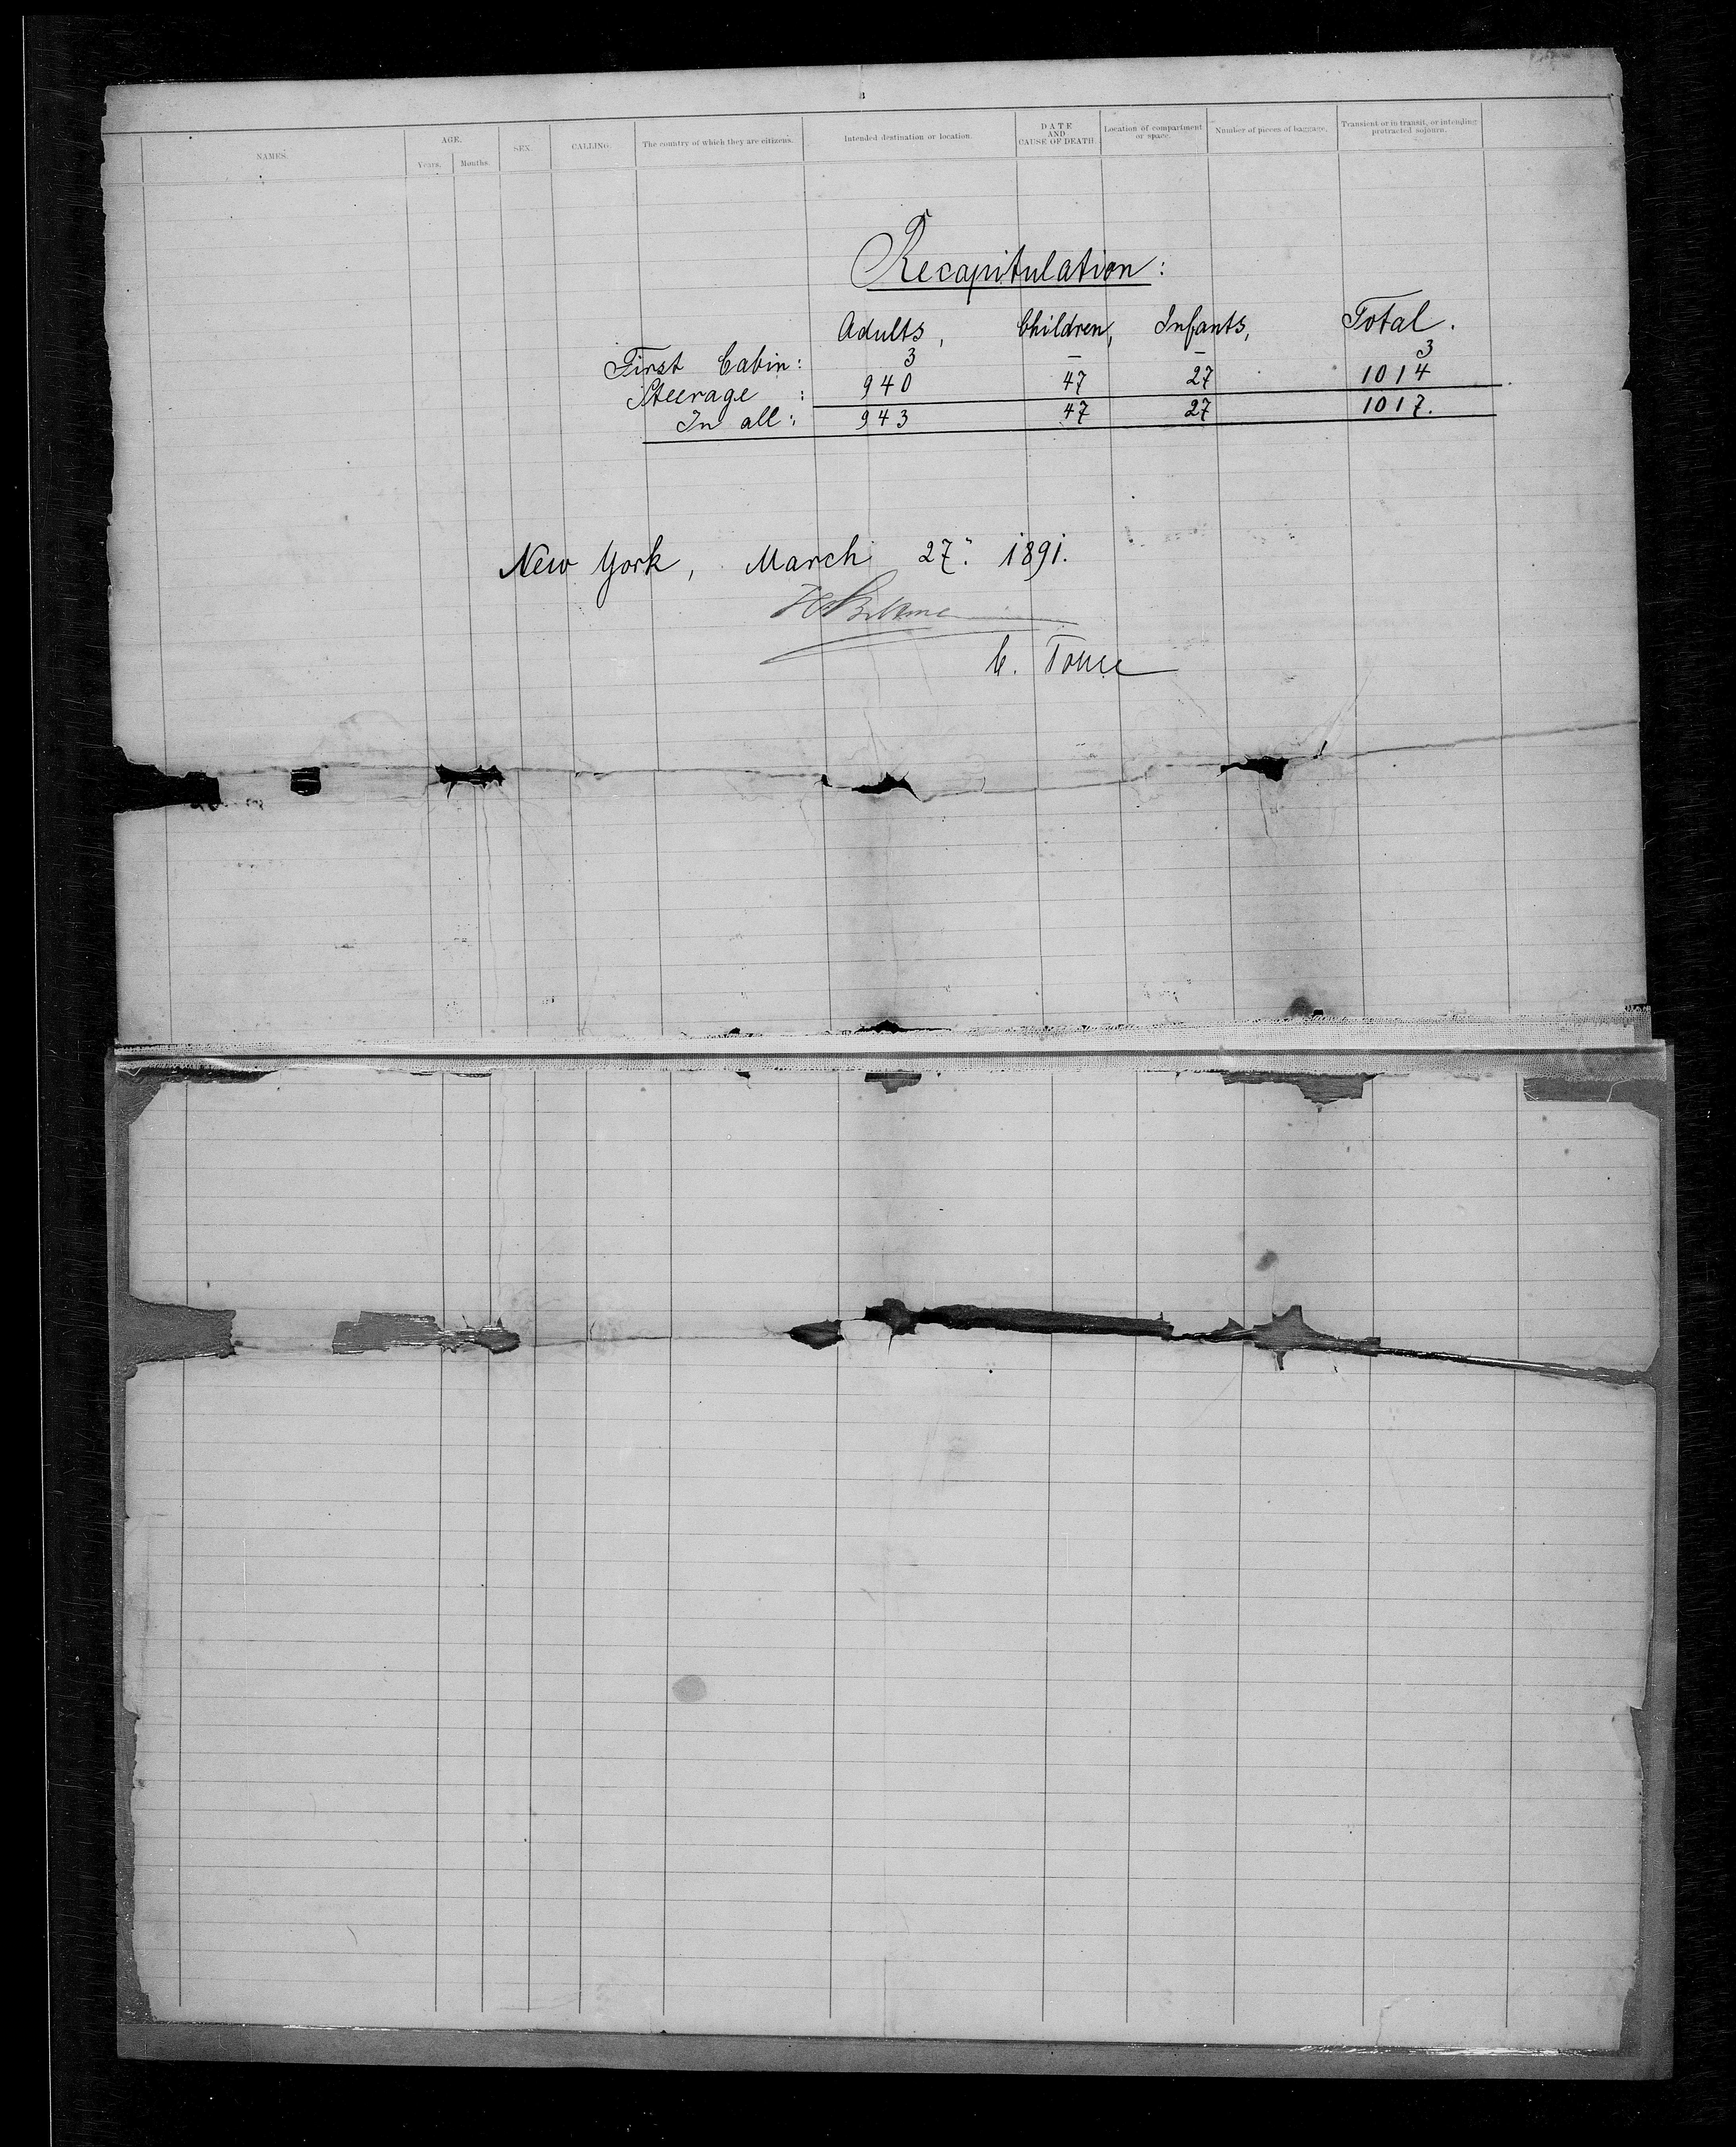 NAMES.
AGE.
Years.
Months.
SEX.
CALLING.
The country of which they are citizens.
Intended destination or location.
DATE
AND
CAUSE OF DEATH.
Location of compartment
or space.
Number of pieces of baggage.
Transient or in transit, or intending
protracted sojourn.
Recapitulation:
Adults, Children, Infants, Total.
First Cabin: 3 — — 3
Steerage : 940 47 27 1014
In all: 943 47 27 1017.
New York, March 27. 1891.
C.